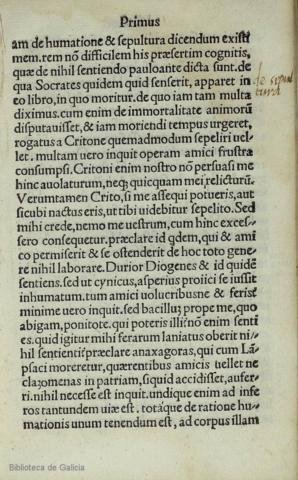 Primus
am de humatione & sepultura dicendum existi
mem. rem nõ difficilem his præsertim cognitis,
quæ de nihil sentiendo pauloante dicta sunt. de
qua Socrates quidem quid senserit, apparet in
eo libro, in quo moritur. de quo iam tam multa
diximus. cum enim de immortalitate animorũ
disputauisset, & iam moriendi tempus urgeret,
rogatus a Critone quemadmodum sepeliri uel/
let. multam uero inquit operam amici frustra
consumpsi. Critoni enim nostro nõ persuasi me
hinc auolaturum, neq; quicquam mei relicturũ.
Verumtamen Crito, si me assequi potueris, aut
sicubi nactus eris, ut tibi uidebitur sepelito. Sed
mihi crede, nemo me uestrum, cum hinc exces/
sero consequetur. præclare id qdem, qui & ami
co permiserit & se ostenderit de hoc toto gene/
re nihil laborare. Durior Diogenes & id quidẽ
sentiens. sed ut cynicus, asperius proiici se iussit
inhumatum. tum amici uolucribusne & feris?
minime uero inquit. sed bacillũ prope me, quo
abigam, ponitote. qui poteris illi? nõ enim senti
es. quid igitur mihi ferarum laniatus oberit ni/
hil sentienti? præclare anaxagoras, qui cum Lã/
psaci moreretur, quærentibus amicis uellet ne
clazomenas in patriam, siquid accidisset, aufer/
ri. nihil necesse est inquit. undique enim ad infe
ros tantundem uiæ est. totáque de ratione hu/
mationis unum tenendum est, ad corpus illam
de sepul
tura
Biblioteca de Galicia